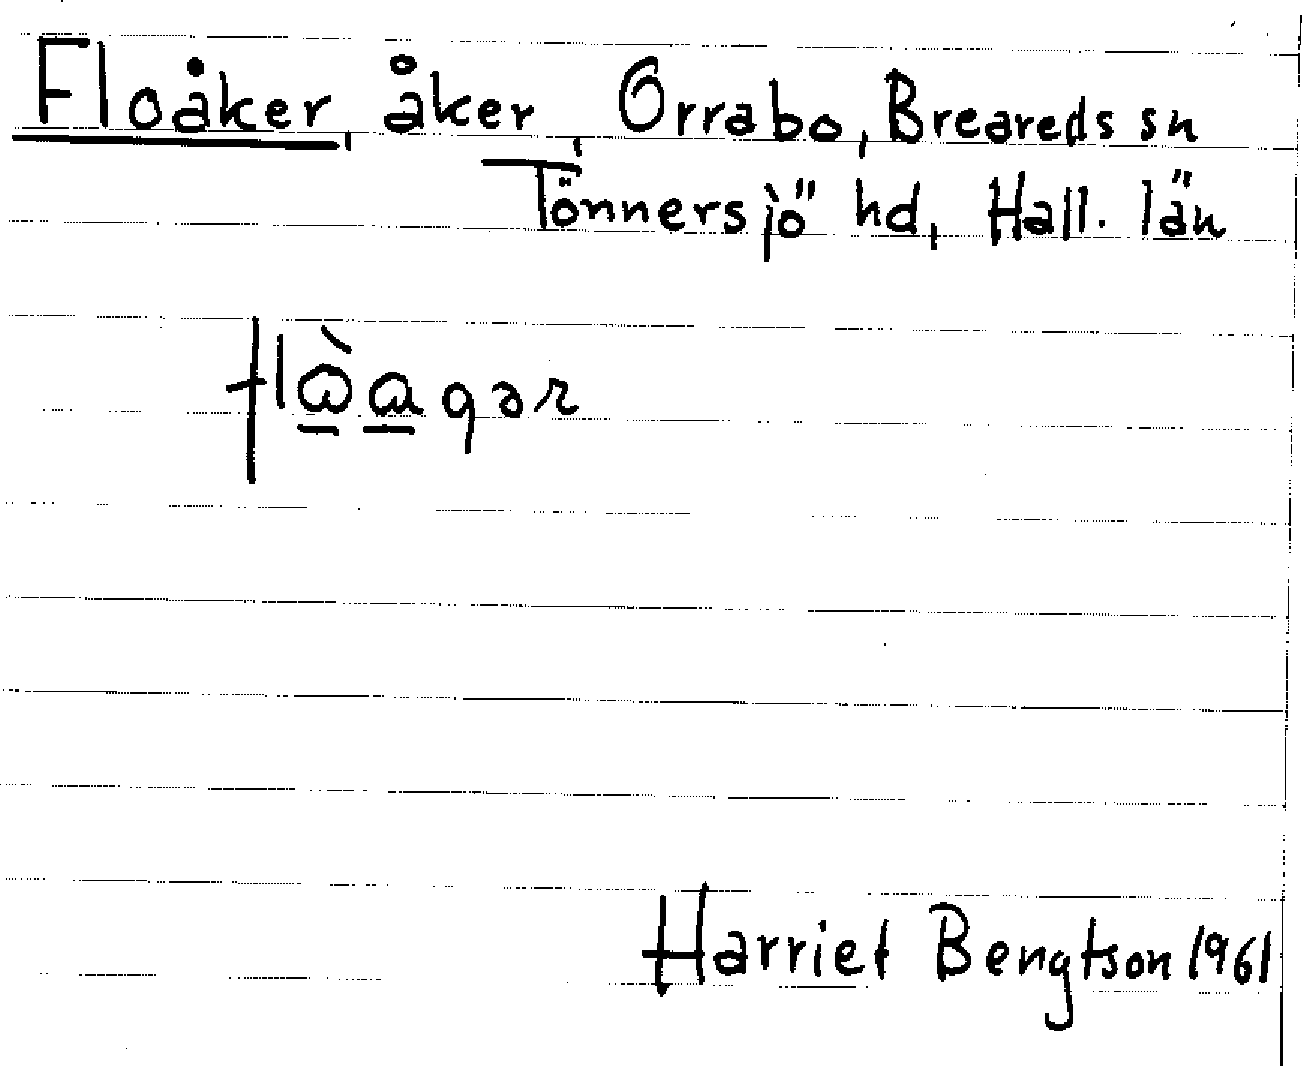 Floåker, åker, Orrabo, Breareds sn
Tönnersjö hd, Hall. län
Harriet Bengtson 1961